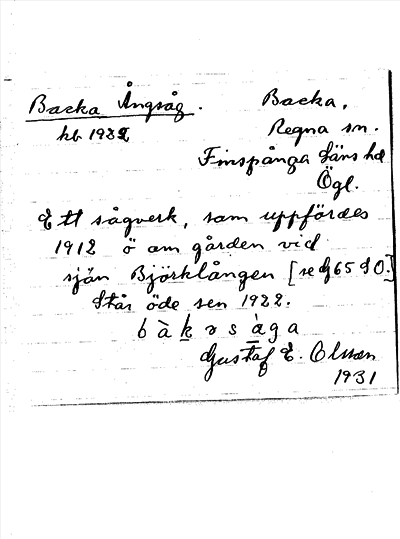 Backa Ångsåg.
Backa,
Regna sn.
Finspånga läns hd
Ögl.
Ett sågverk, som uppfördes
1912 ö om gården vid
sjön Björklången [se 65 SO.]
Står öde sen 1922.
Gustaf E. Olsson
1931